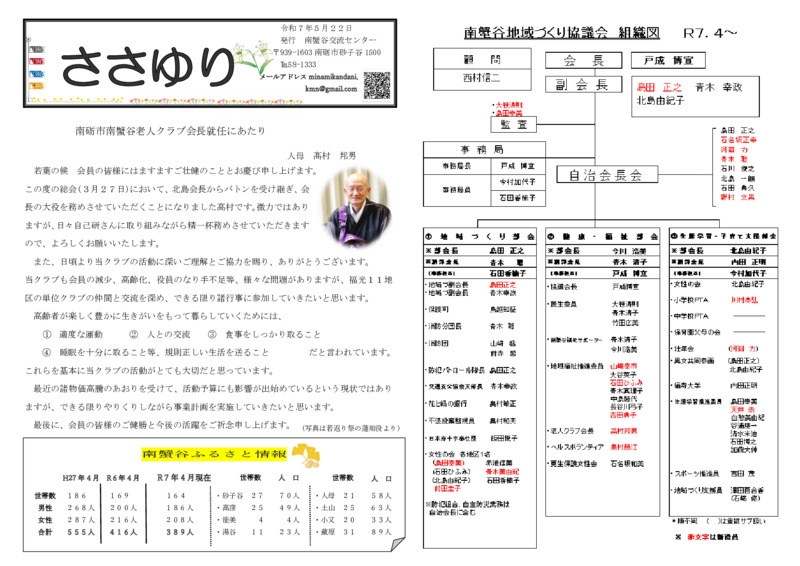 令和７年５月２２日
発行　南蟹谷交流センター
〒939-1603 南砺市砂子谷 1500
℡58-1333
メールアドレス minamikandani.
kmn@gmail.com
ささゆり
南砺市南蟹谷老人クラブ会長就任にあたり
人母　髙村　邦男
若葉の候　会員の皆様にはますますご壮健のこととお慶び申し上げます。
この度の総会(３月２７日)において、北島会長からバトンを受け継ぎ、会
長の大役を務めさせていただくことになりました高村です。微力ではあり
ますが、日々自己研さんに取り組みながら精一杯務めさせていただきます
ので、よろしくお願いいたします。
また、日頃より当クラブの活動に深いご理解とご協力を賜り、ありがとうございます。
当クラブも会員の減少、高齢化、役員のなり手不足等、様々な問題がありますが、福光１１地
区の単位クラブの仲間と交流を深め、できる限り諸行事に参加していきたいと思います。
高齢者が楽しく豊かに生きがいをもって暮らしていくためには、
①　適度な運動　　②　人との交流　③　食事をしっかり取ること
④　睡眠を十分に取ること等、規則正しい生活を送ること　　　だと言われています。
これらを基本に当クラブの活動がとても大切だと思っています。
最近の諸物価高騰のあおりを受けて、活動予算にも影響が出始めているという現状ではあり
ますが、できる限りやりくりしながら事業計画を実施していきたいと思います。
最後に、会員の皆様のご健勝と今後の活躍をご祈念申し上げます。　(写真は若返り祭の蓮如役より)
南蟹谷ふるさと情報
H27年４月　R６年４月　R７年４月現在　世帯数　人　口　世帯数　人　口
世帯数　１８６　１６９　１６４　・砂子谷　２７　７０人　・人母　２１　５８人
男性　２６８人　２００人　１８６人　・高窪　２５　４９人　・土山　２５　６３人
女性　２８７人　２１６人　２０８人　・能美　４　４人　・小又　２０　３３人
合計　５５５人　４１６人　３８９人　・湯谷　１１　２３人　・蔵原　３１　８９人
南蟹谷地域づくり協議会 組織図　R7. 4～
顧　問
西村信二
会　長
戸成 博宣
副 会 長
島田 正之　青木 幸政
北島由紀子
・島田幸美
監 査
事 務 局
事務局長　戸成 博宣
事務局員　今村加代子
石田香楠子
自治会長会
島田 正之
石名坂正幸
河原 力
青木 聡
石川 俊之
北島 一朗
石田 典久
野村 文男
① 地 域 づ く り 部 会
※部会長　島田 正之
※副部会長　青木 聡
(事務担当)　石田香楠子
・地域づ副会長　島田正之
・地域づ副会長　青木幸政
・保護司　鳥越知証
・消防分団長　青木 聡
・消防団
・防犯パトロール隊長　島田正之
・交通安全協会支部長　青木幸政
・花と緑の銀行　奥村敏正
・不法投棄監視員　奥村和夫
・日本赤十字奉仕団
・女性の会 各地区１名
(島田幸美)
(石田ひふみ)　青木美由紀
(北島由紀子)　石田香楠子
前田圭子
※防犯組合、自主防災業務は
自治会長に含む
② 健 康 ・ 福 祉 部 会
※部会長　今川 浩美
※副部会長　青木 清子
(事務担当)　戸成 博宣
・協議会長　戸成博宣
・民生委員　大谷清則
青木清子
竹田広美
青木清子
今川浩美
・地域福祉推進委員　山崎幸市
大谷英子
石田ひふみ
青木真理子
中島聡代
長谷川弓子
吉田典子
・老人クラブ会長　高村邦男
・ヘルスボランティア　奥村昌江
・更生保護女性会　石名坂和美
③生涯学習・子育て支援部会
※部会長　北島由紀子
※副部会長　内田 正明
(事務担当)　今村加代子
・女性の会　北島由紀子
・小学校PTA　川村志弘
・中学校PTA
・保育園父母の会
・壮年会　(河原 力)
・男女共同参画　(島田正之)
北島由紀子
・福寿大学　内田正明
・生涯学習推進員　島田幸美
天井 崇
谷浦順一
清水末治
石田博之
加藤大伸
・スポーツ推進員　宮田 茂
・地域づくり支援員　瀬田百合香
(石崎 修)
＊順不同　( )は重複サブ扱い
※ 赤文字は新役員